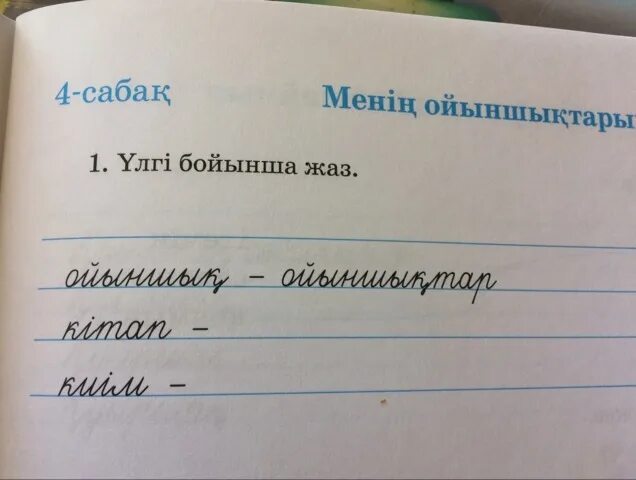 4-сабақ
Менің ойыншықтары
1. Үлгі бойынша жаз.
ойыншық – ойыншықтар
кітап –
киім –